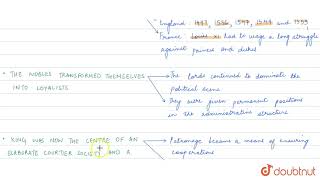 England: 1497, 1536, 1547, 1549 and 1553
France Louis XI had to wage a long struggle
against princes and dukes
• THE NOBLES TRANSFORMED THEMSELVES
INTO LOYALISTS
The lords continued to dominate the
political scene
They were given permanent positions
in the administrative structure
• KING WAS NOW THE CENTRE OF AN
ELABORATE COURTIER SOCIETY AND A
Patronage became a means of ensuring
cooperation
doubtnut